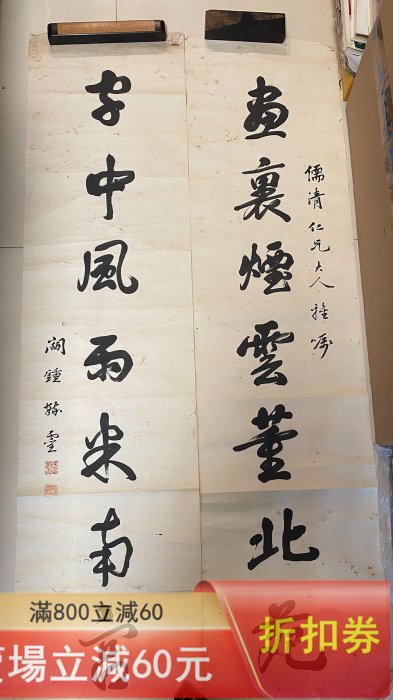 儒清仁兄大人雅嘱
畫裏煙雲董北苑
字中風雨米南宮
滿800立減60
賣場立減60元
折扣券